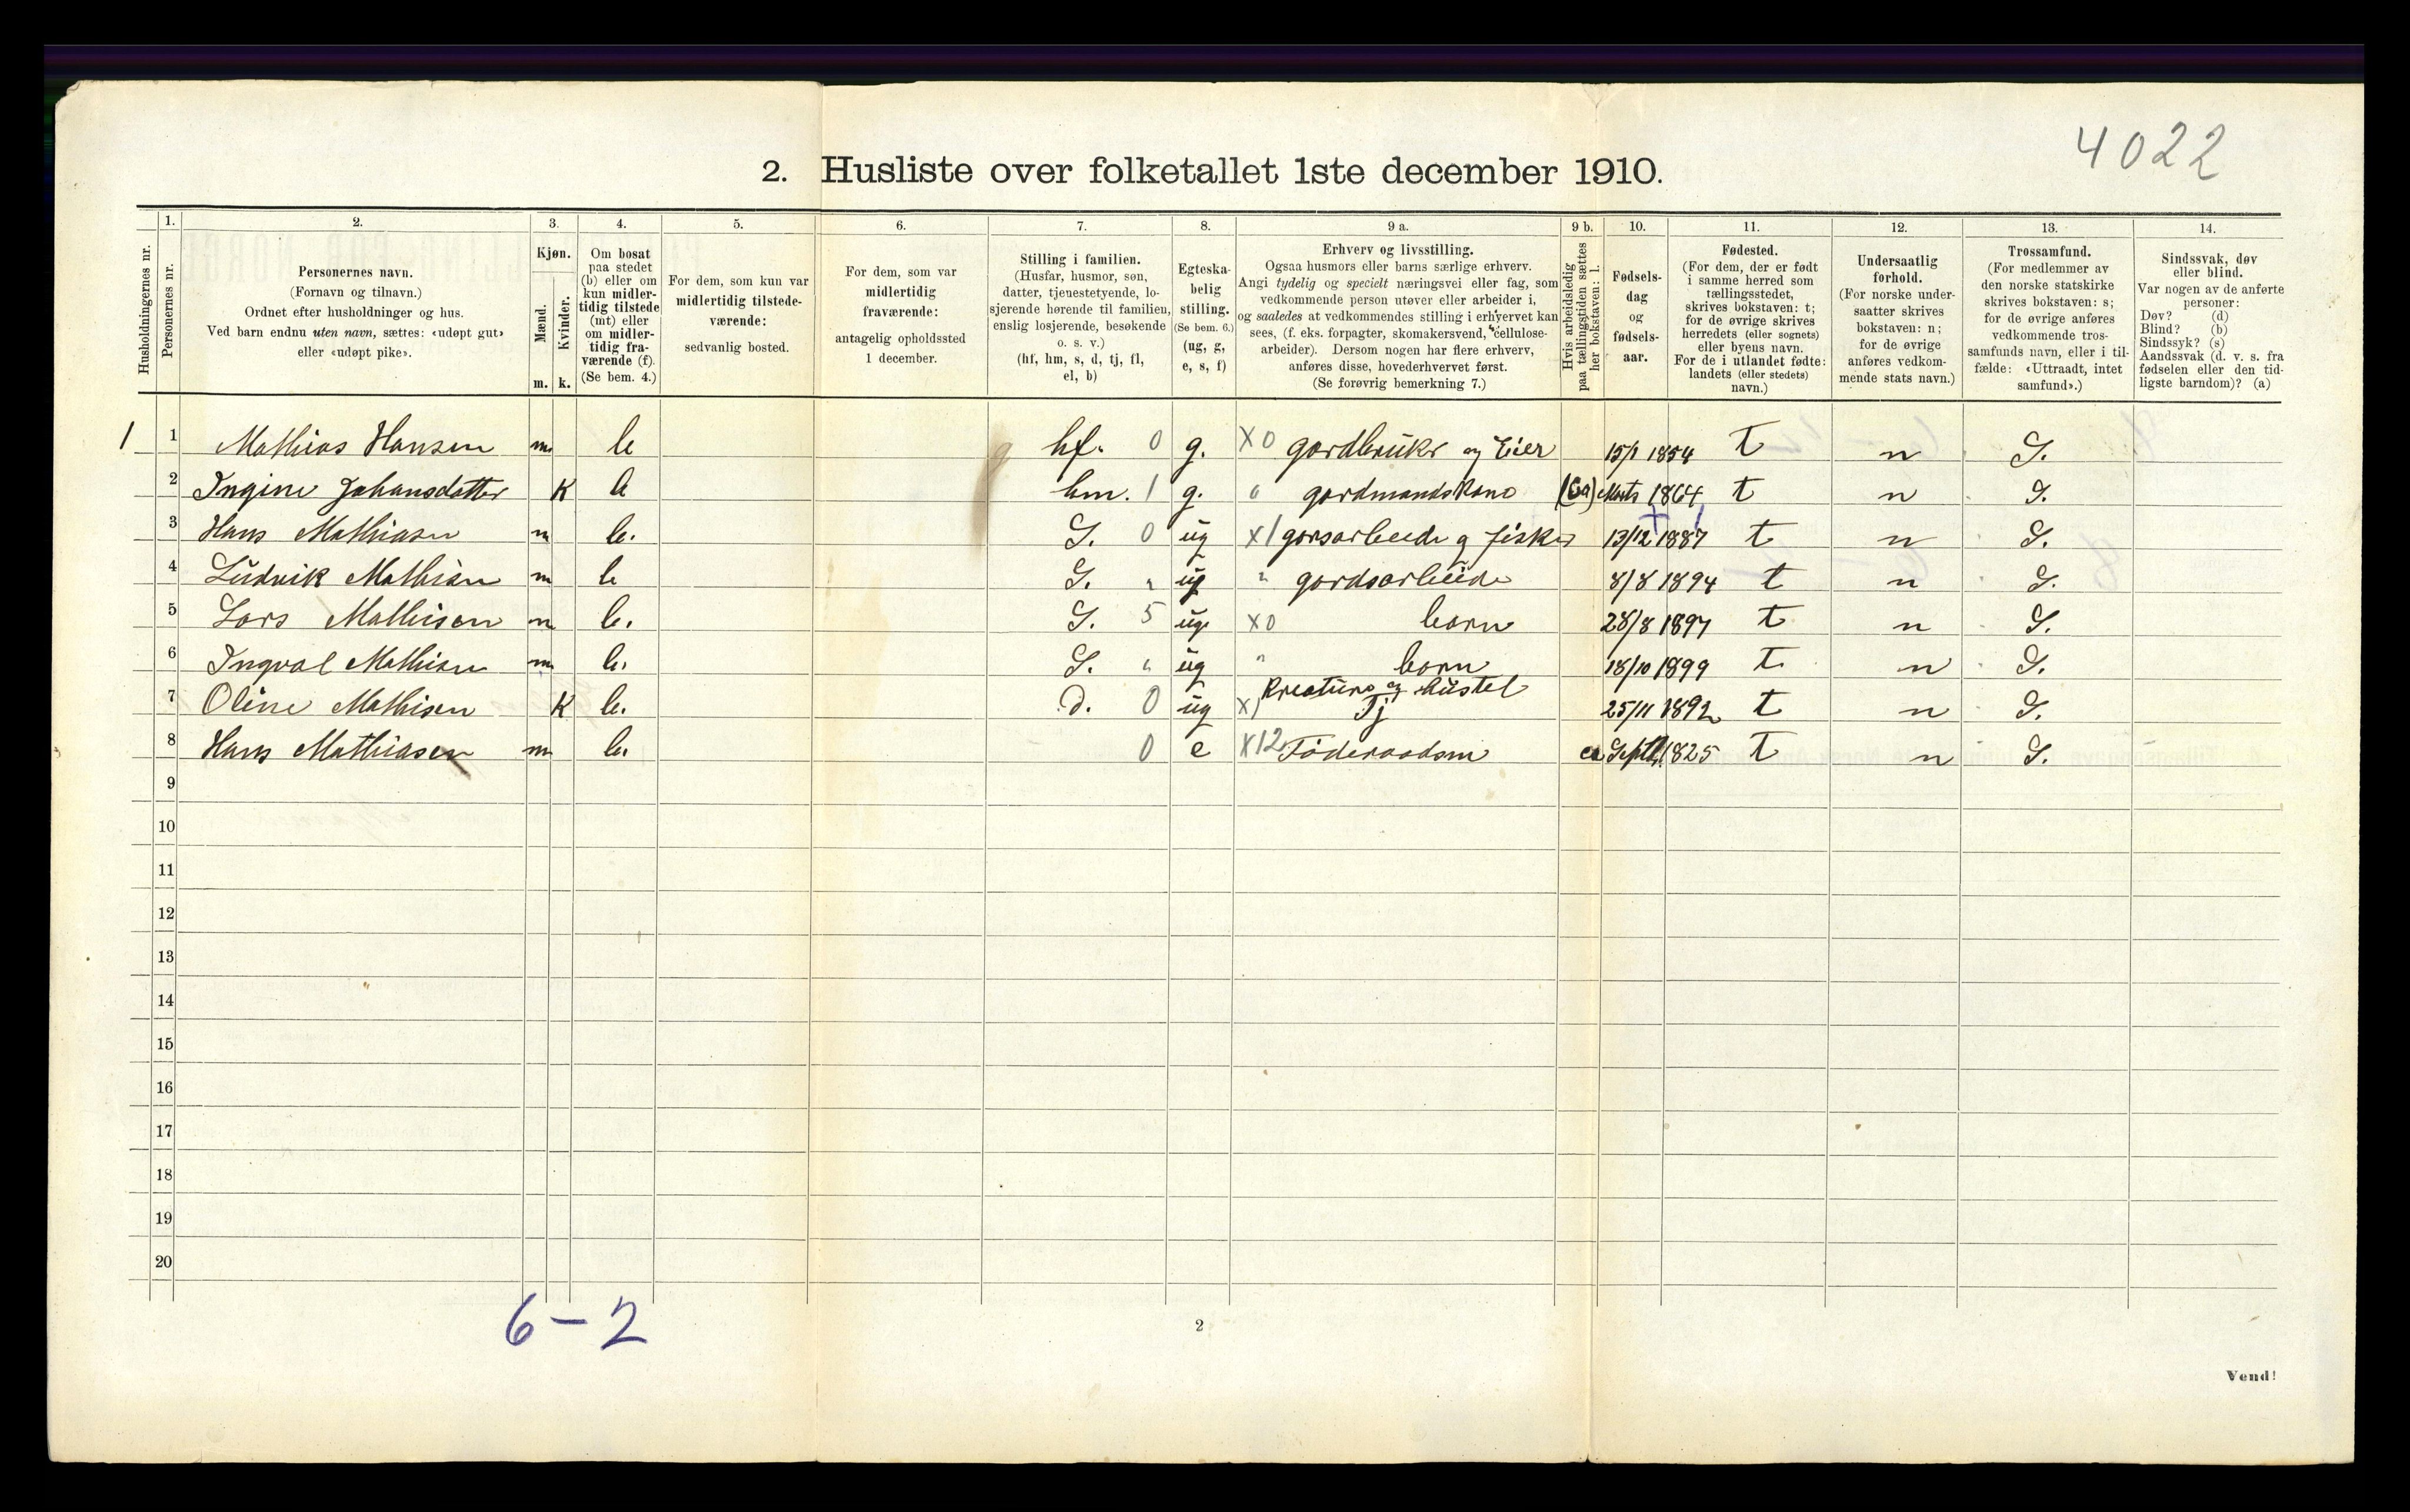 4022
2. Husliste over folketallet 1ste december 1910.
Husholdningernes nr.
1.
Personernes nr.
2.
Personernes navn.
(Fornavn og tilnavn.)
Ordnet efter husholdninger og hus.
Ved barn endnu uten navn, sættes: «udøpt gut»
eller «udøpt pike».
3.
Kjøn.
Mænd.
Kvinder.
m. k.
4.
Om bosat
paa stedet
(b) eller om
kun midler-
tidig tilstede
(mt) eller
om midler-
tidig fra-
værende (f).
(Se bem. 4.)
5.
For dem, som kun var
midlertidig tilstede-
værende:
sedvanlig bosted.
6.
For dem, som var
midlertidig
fraværende:
antagelig opholdssted
1 december.
7.
Stilling i familien.
(Husfar, husmor, søn,
datter, tjenestetyende, lo-
sjerende hørende til familien,
enslig losjerende, besøkende
o. s. v.)
(hf, hm, s, d, tj, fl,
el, b)
8.
Egteska-
belig
stilling.
(Se bem. 6.)
(ug, g,
e, s, f)
9 a.
Erhverv og livsstilling.
Ogsaa husmors eller barns særlige erhverv.
Angi tydelig og specielt næringsvei eller fag, som
vedkommende person utøver eller arbeider i,
og saaledes at vedkommendes stilling i erhvervet kan
sees, (f. eks. forpagter, skomakersvend, cellulose-
arbeider). Dersom nogen har flere erhverv,
anføres disse, hovederhvervet først.
(Se forøvrig bemerkning 7.)
9 b.
Hvis arbeidsledig
paa tællingstiden sættes
her bokstaven: l.
10.
Fødsels-
dag
og
fødsels-
aar.
11.
Fødested.
(For dem, der er født
i samme herred som
tællingsstedet,
skrives bokstaven: t;
for de øvrige skrives
herredets (eller sognets)
eller byens navn.
For de i utlandet fødte:
landets (eller stedets)
navn.)
12.
Undersaatlig
forhold.
(For norske under-
saatter skrives
bokstaven: n;
for de øvrige
anføres vedkom-
mende stats navn.)
13.
Trossamfund.
(For medlemmer av
den norske statskirke
skrives bokstaven: s;
for de øvrige anføres
vedkommende tros-
samfunds navn, eller i til-
fælde: «Uttraadt, intet
samfund».)
14.
Sindssvak, døv
eller blind.
Var nogen av de anførte
personer:
Døv? (d)
Blind? (b)
Sindssyk? (s)
Aandssvak (d. v. s. fra
fødselen eller den tid-
ligste barndom)? (a)
1 1 Mathias Hansen m b hf. 0 g. X0 gardbruker og Eier 15/1 1854 t n S.
2 Ingine Johansdatter K b hm. 1 g. " gardmandskone (Ca) Marts 1864 t n S.
3 Hans Mathiasen m b. S. 0 ug X1 garsarbeide og fisker 13/12 1887 t n S.
4 Ludvik Mathisen m b S. " ug " gardsarbeide 8/8 1894 t n S.
5 Lars Mathisen m b. S. 5 ug X0 barn 28/8 1897 t n S.
6 Ingval Mathisen m b. S. " ug " barn 18/10 1899 t n S.
7 Oline Mathisen K b. d. 0 ug X1 Kreaturs og hüstel Tj 25/11 1892 t n S.
8 Hans Mathiasen m b. 0 e X12 Föderaadsm ca Septbr. 1825 t n S.
9
10
11
12
13
14
15
16
17
18
19
20
6-2
2
Vend!